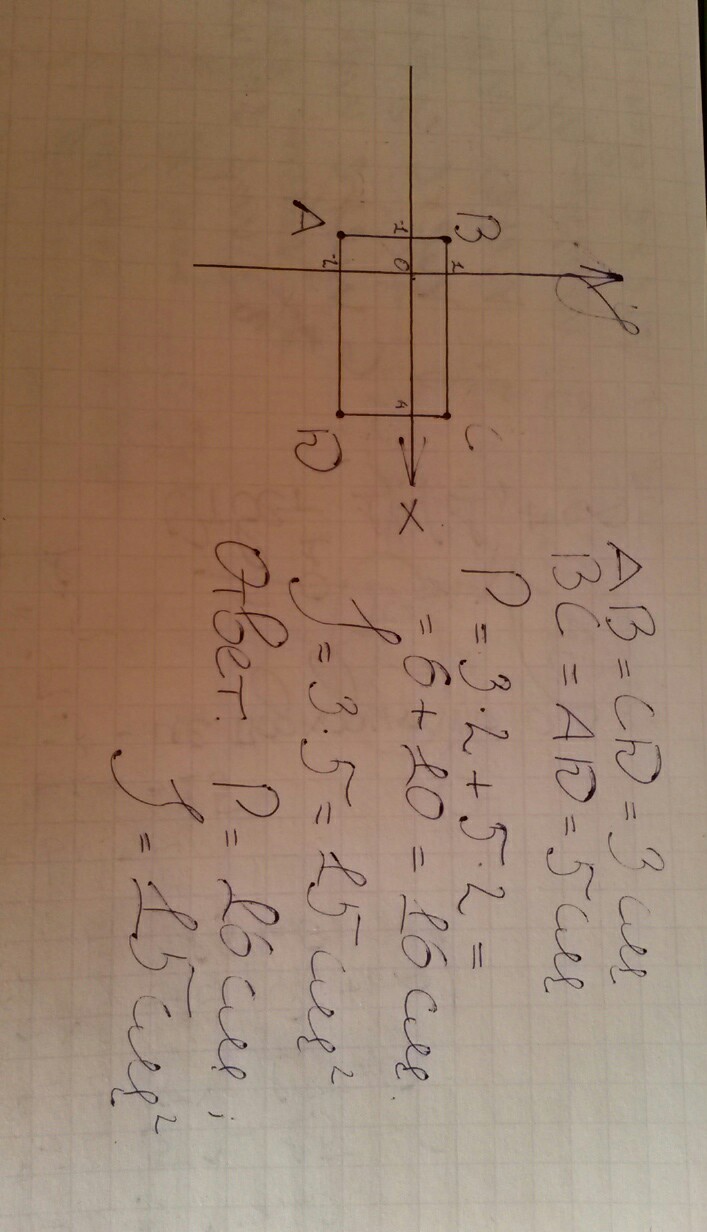 y
B
C
1
-1
0
4
x
A
-2
D
AB = CD = 3 см
BC = AD = 5 см
P = 3·2 + 5·2 =
= 6 + 10 = 16 см.
S = 3·5 = 15 см²
Ответ. P = 16 см;
S = 15 см²